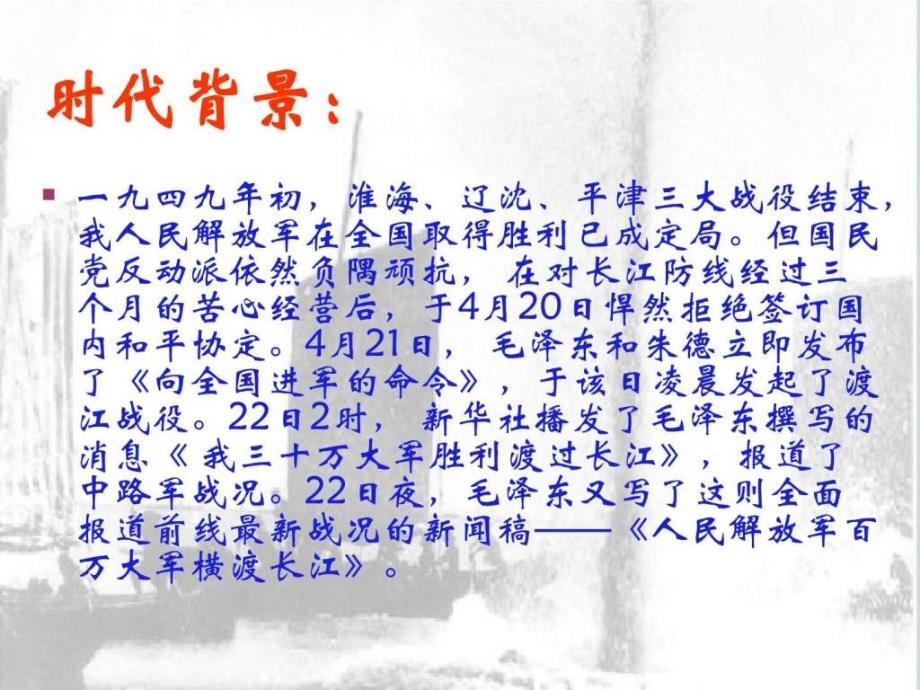 时代背景：
一九四九年初，淮海、辽沈、平津三大战役结束，
我人民解放军在全国取得胜利已成定局。但国民
党反动派依然负隅顽抗， 在对长江防线经过三
个月的苦心经营后，于4月20日悍然拒绝签订国
内和平协定。4月21日， 毛泽东和朱德立即发布
了《向全国进军的命令》，于该日凌晨发起了渡
江战役。22日2时， 新华社播发了毛泽东撰写的
消息《 我三十万大军胜利渡过长江》，报道了
中路军战况。22日夜，毛泽东又写了这则全面
报道前线最新战况的新闻稿——《人民解放军百
万大军横渡长江》。